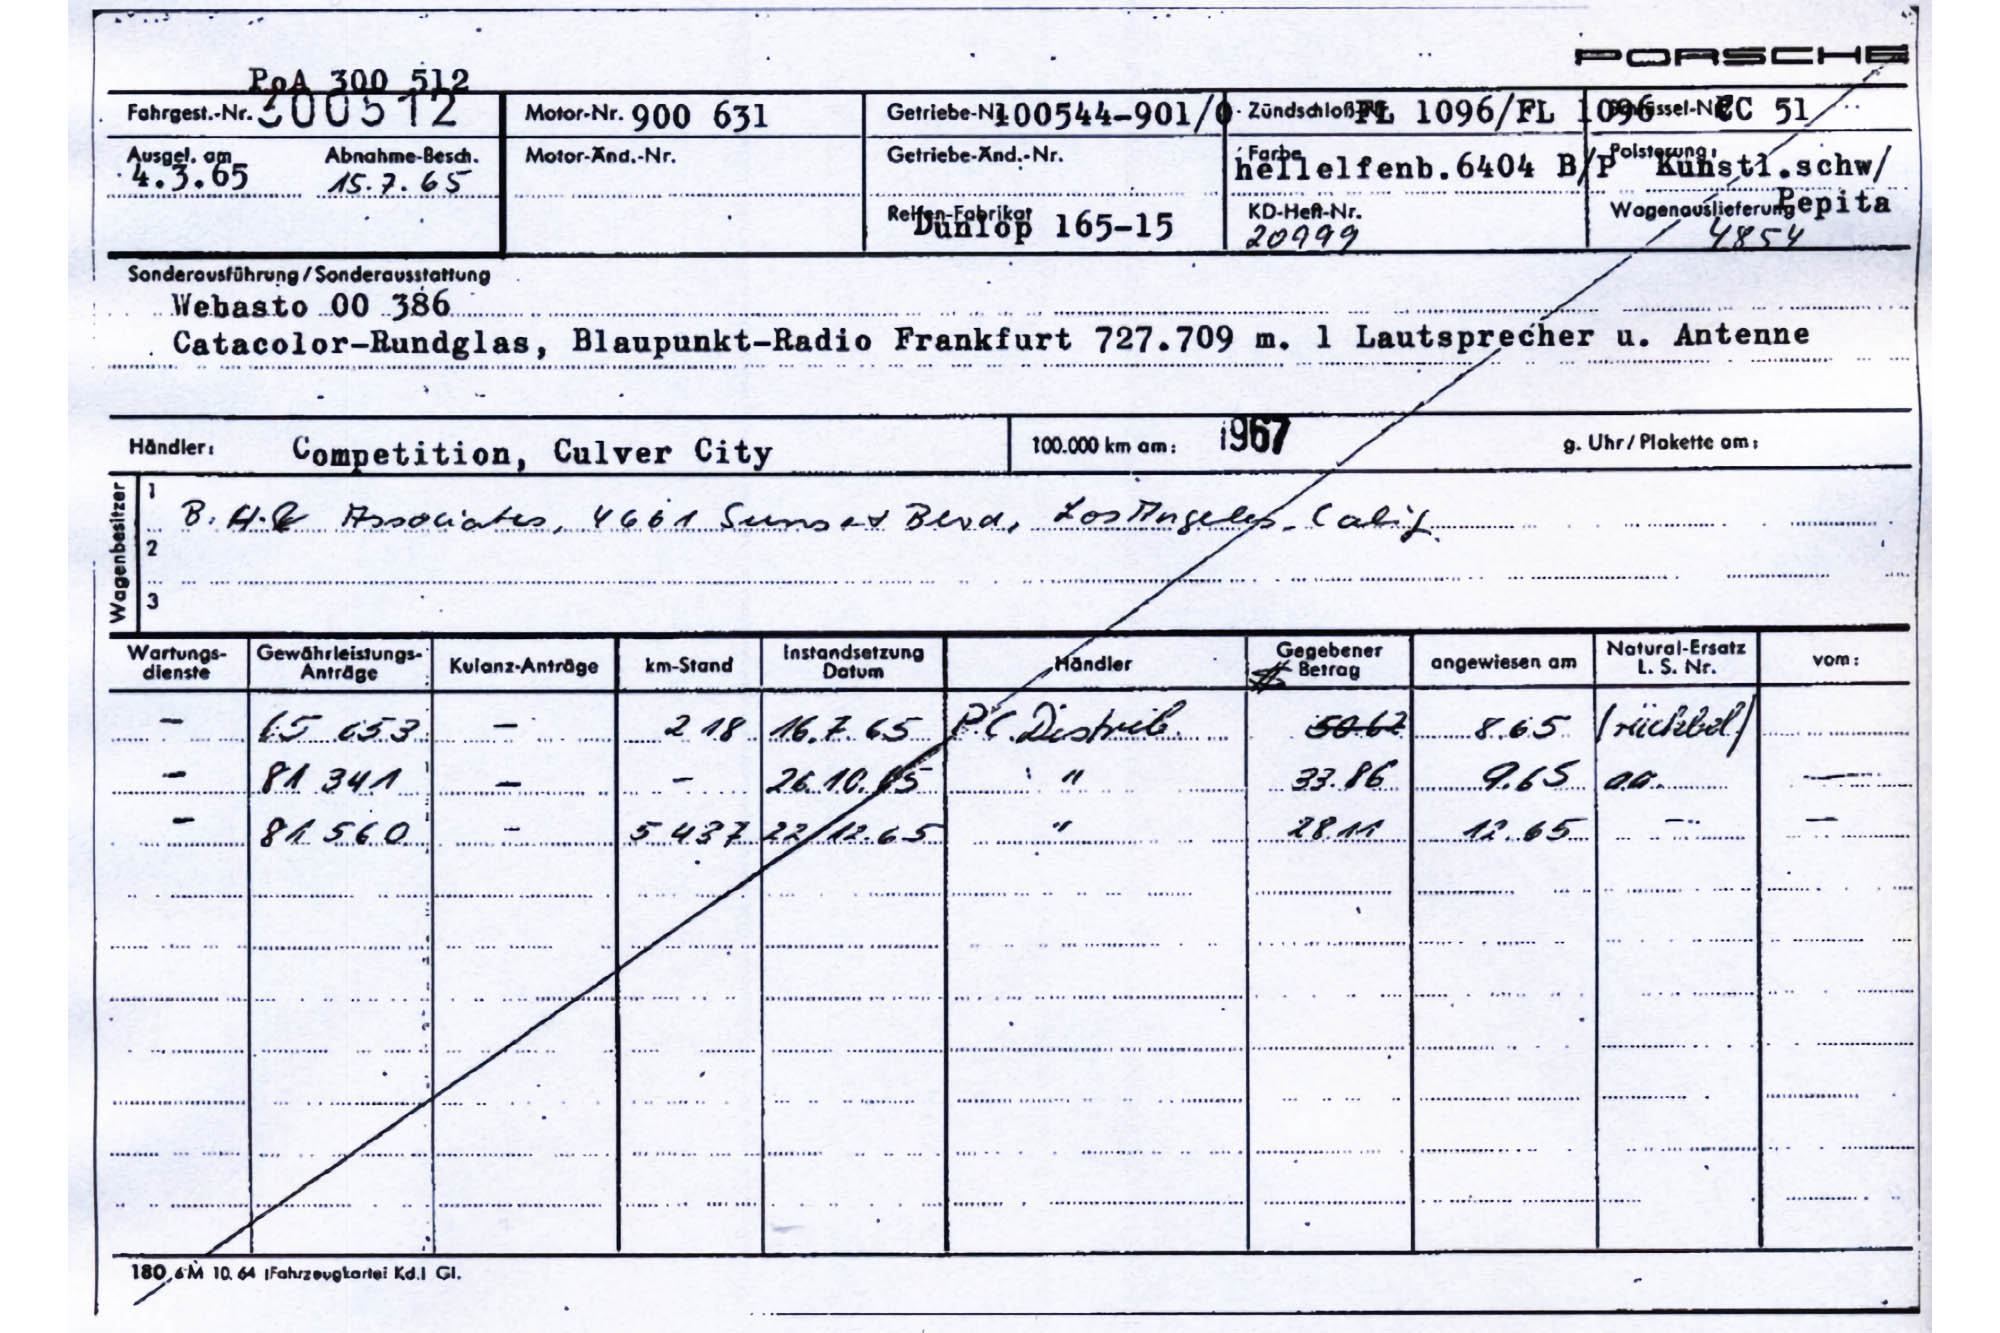 PORSCHE
PoA 300 512
Fahrgest.-Nr. 300512 Motor-Nr. 900 631 Getriebe-Nr. 100544-901/0 Zündschloß-Nr. FL 1096/FL 1096 Schlüssel-Nr. CC 51
Ausgel. am Abnahme-Besch. Motor-Änd.-Nr. Getriebe-Änd.-Nr. Farbe Polsterung:
4.3.65 15.7.65 hellelfenb.6404 B/P Kunstl.schw/
Pepita
Reifen-Fabrikat Dunlop 165-15 KD-Heft-Nr. Wagenauslieferung
20999 4854
Sonderausführung/Sonderausstattung
Webasto 00 386
Catacolor-Rundglas, Blaupunkt-Radio Frankfurt 727.709 m. 1 Lautsprecher u. Antenne
Händler: Competition, Culver City 100.000 km am: 1967 g. Uhr/Plakette am:
Wagenbesitzer
1 B.H. Associates, 4661 Sunset Blvd, Los Angeles, Calif.
2
3
Wartungs- Gewährleistungs- Kulanz-Anträge km-Stand Instandsetzung Händler Gegebener angewiesen am Natural-Ersatz vom:
dienste Anträge Datum $ Betrag L. S. Nr.
- 65 653 - 218 16.7.65 P.C. Distrib. 50.62 8.65 (rückbel)
- 81 341 - - 26.10.65 " 33.86 9.65 a.a. -
- 81 560 - 5 437 22.12.65 " 28.11 12.65 - -
180 6M 10.64 (Fahrzeugkartei Kd.) Gl.